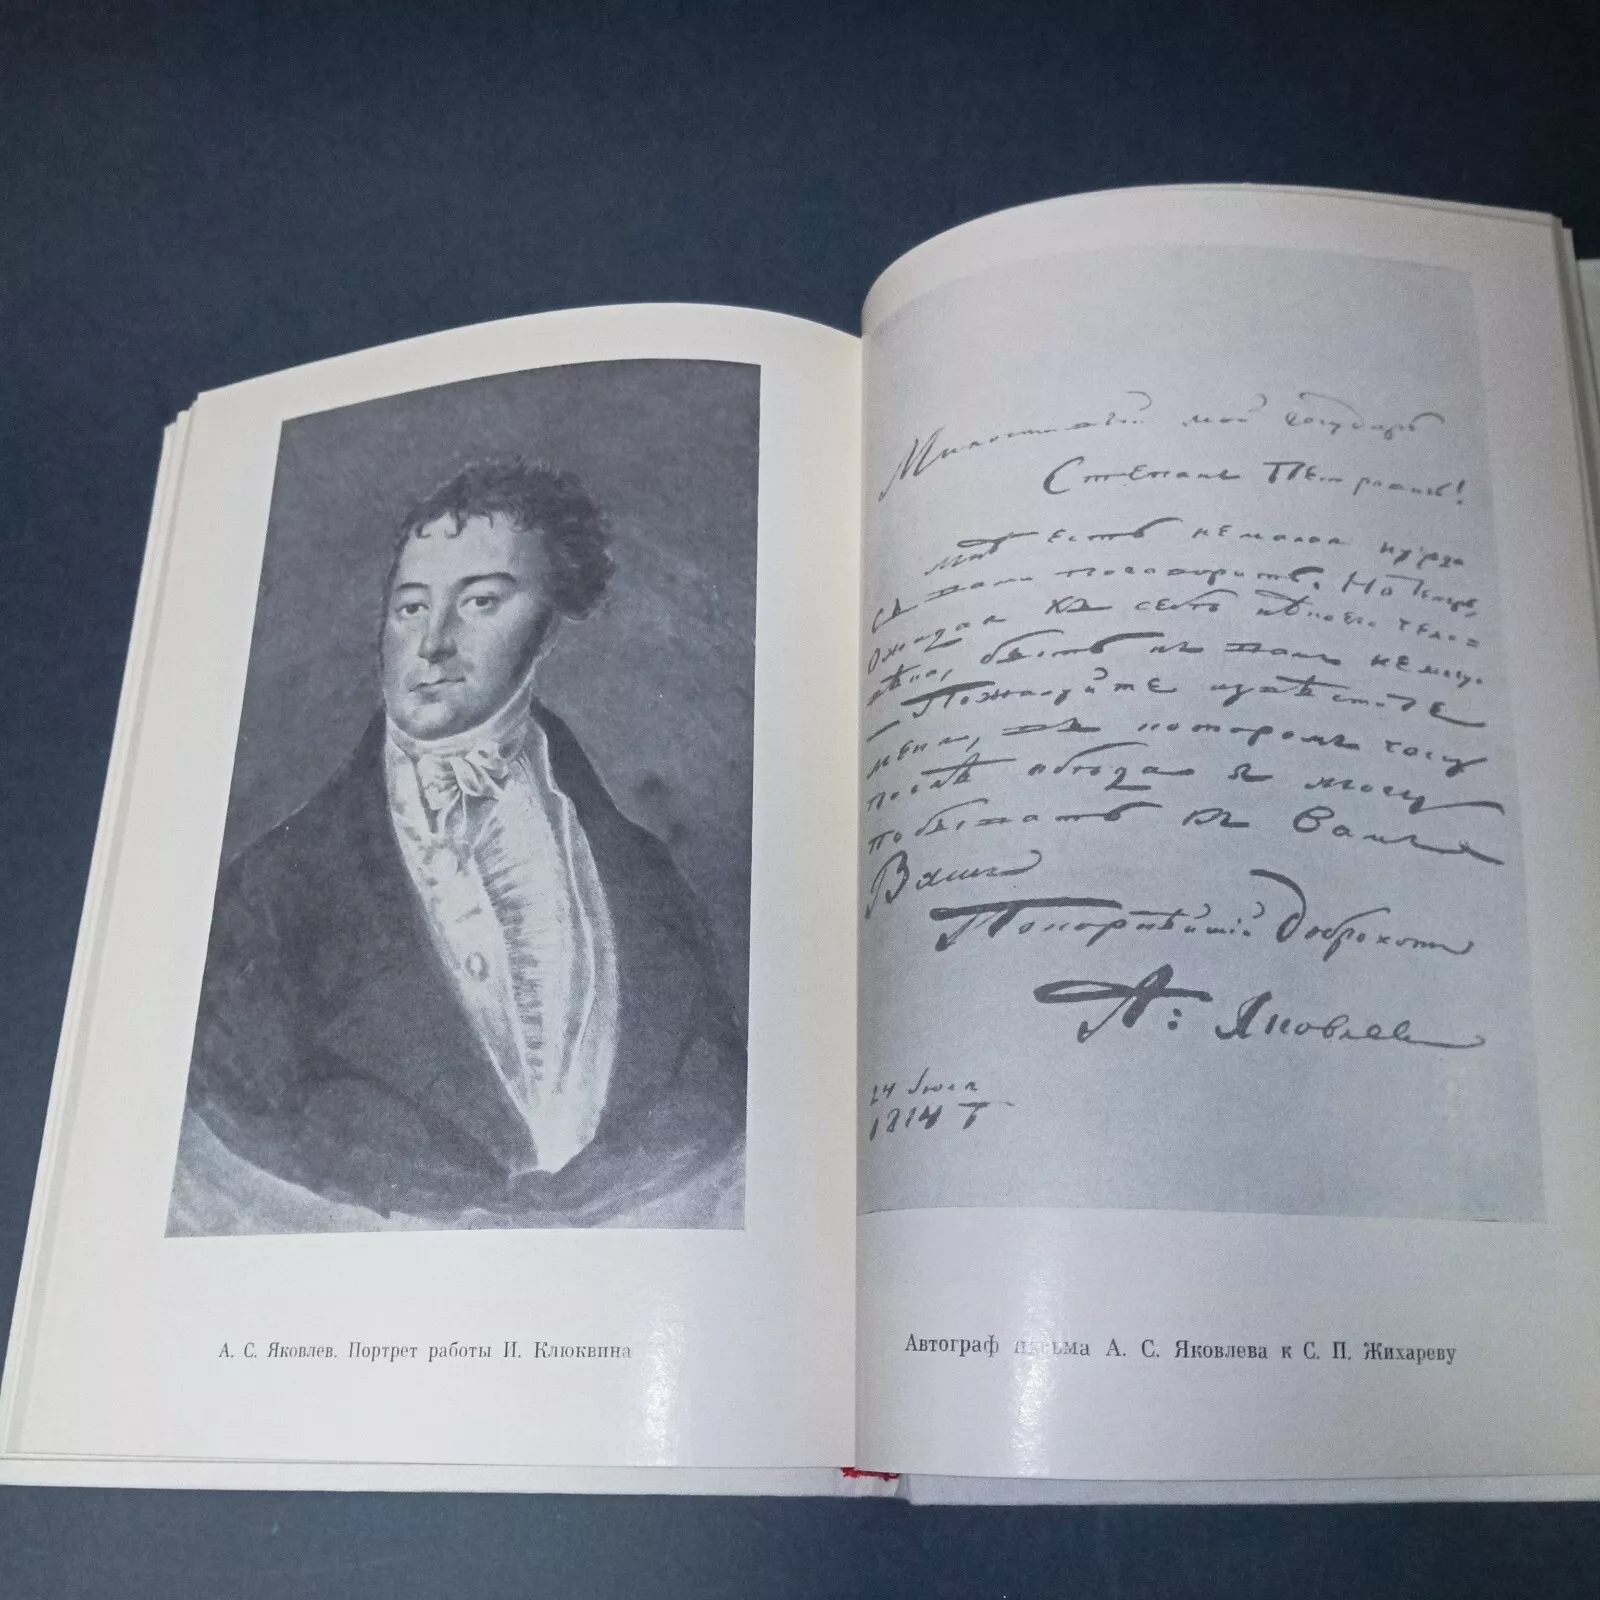 А. С. Яковлев. Портрет работы И. Клюквина
Милостивый мой Государь
Степанъ Петровичь!
Мнѣ есть немалая нужда
съ вами поговорить. Но теперь,
Ожидая къ себѣ нѣкоего чело=
вѣка, быть къ вамъ не могу.
— Пожалуйте извѣстите
меня, въ которомъ часу
послѣ обѣда я могу
побывать къ Вамъ
Вашъ
Покорнѣйшій Доброхотъ
А: Яковлевъ
24 Июля
1814 Г
Автограф письма А. С. Яковлева к С. П. Жихареву